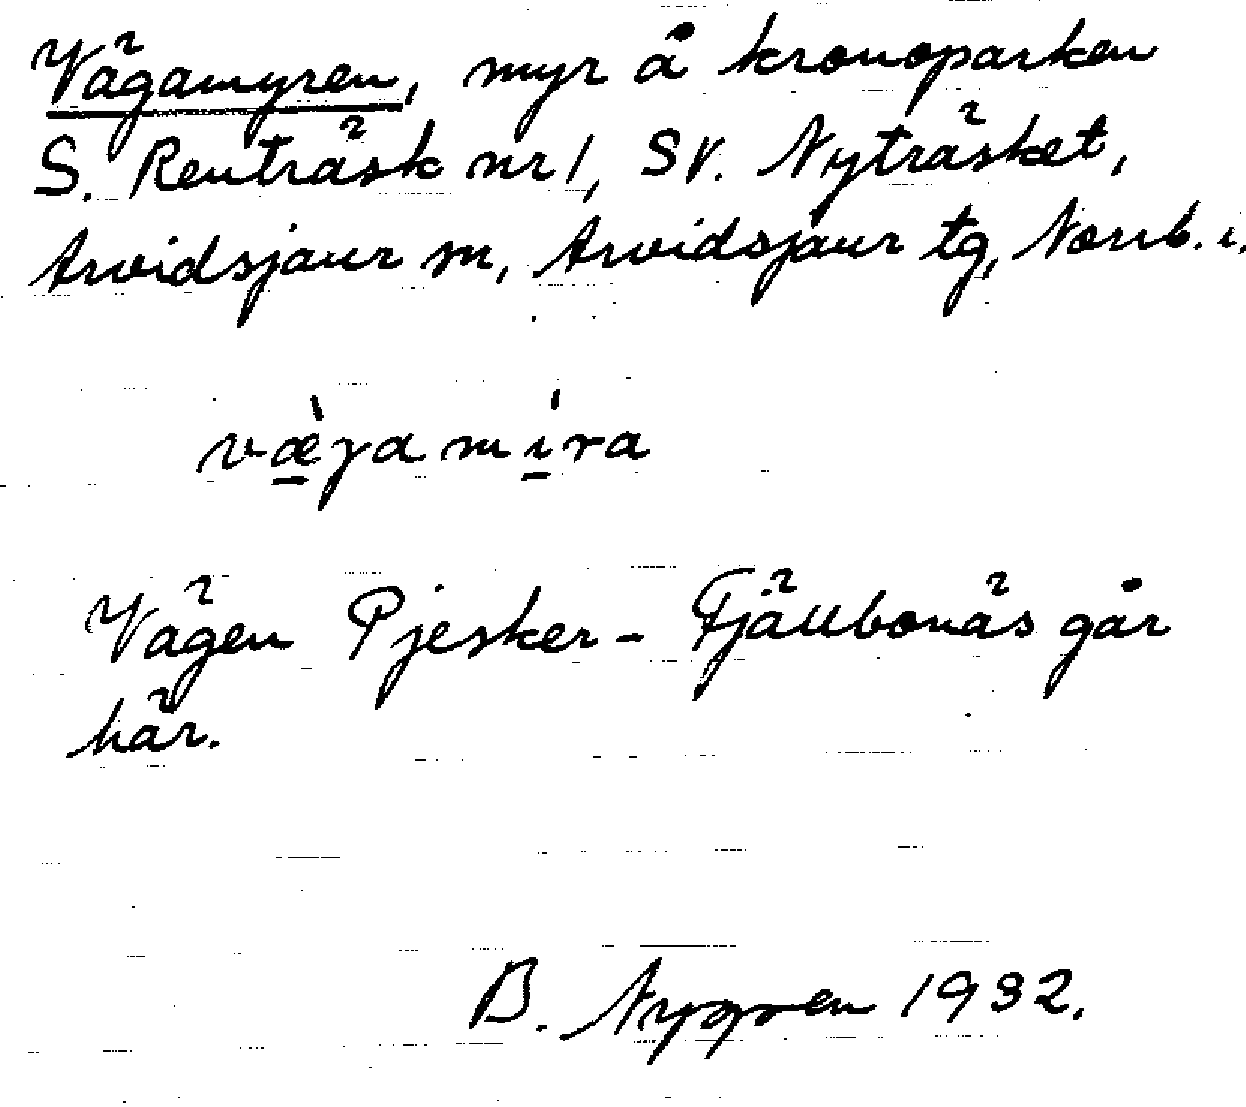 Vägamyren, myr å kronoparken
S. Renträsk nr 1, SV. Nyträsket,
Arvidsjaur sn, Arvidsjaur tg, Norrb. l.
væ̀gamíra
Vägen Pjesker - Fjällbonäs går
här.
B. Nygren 1932.